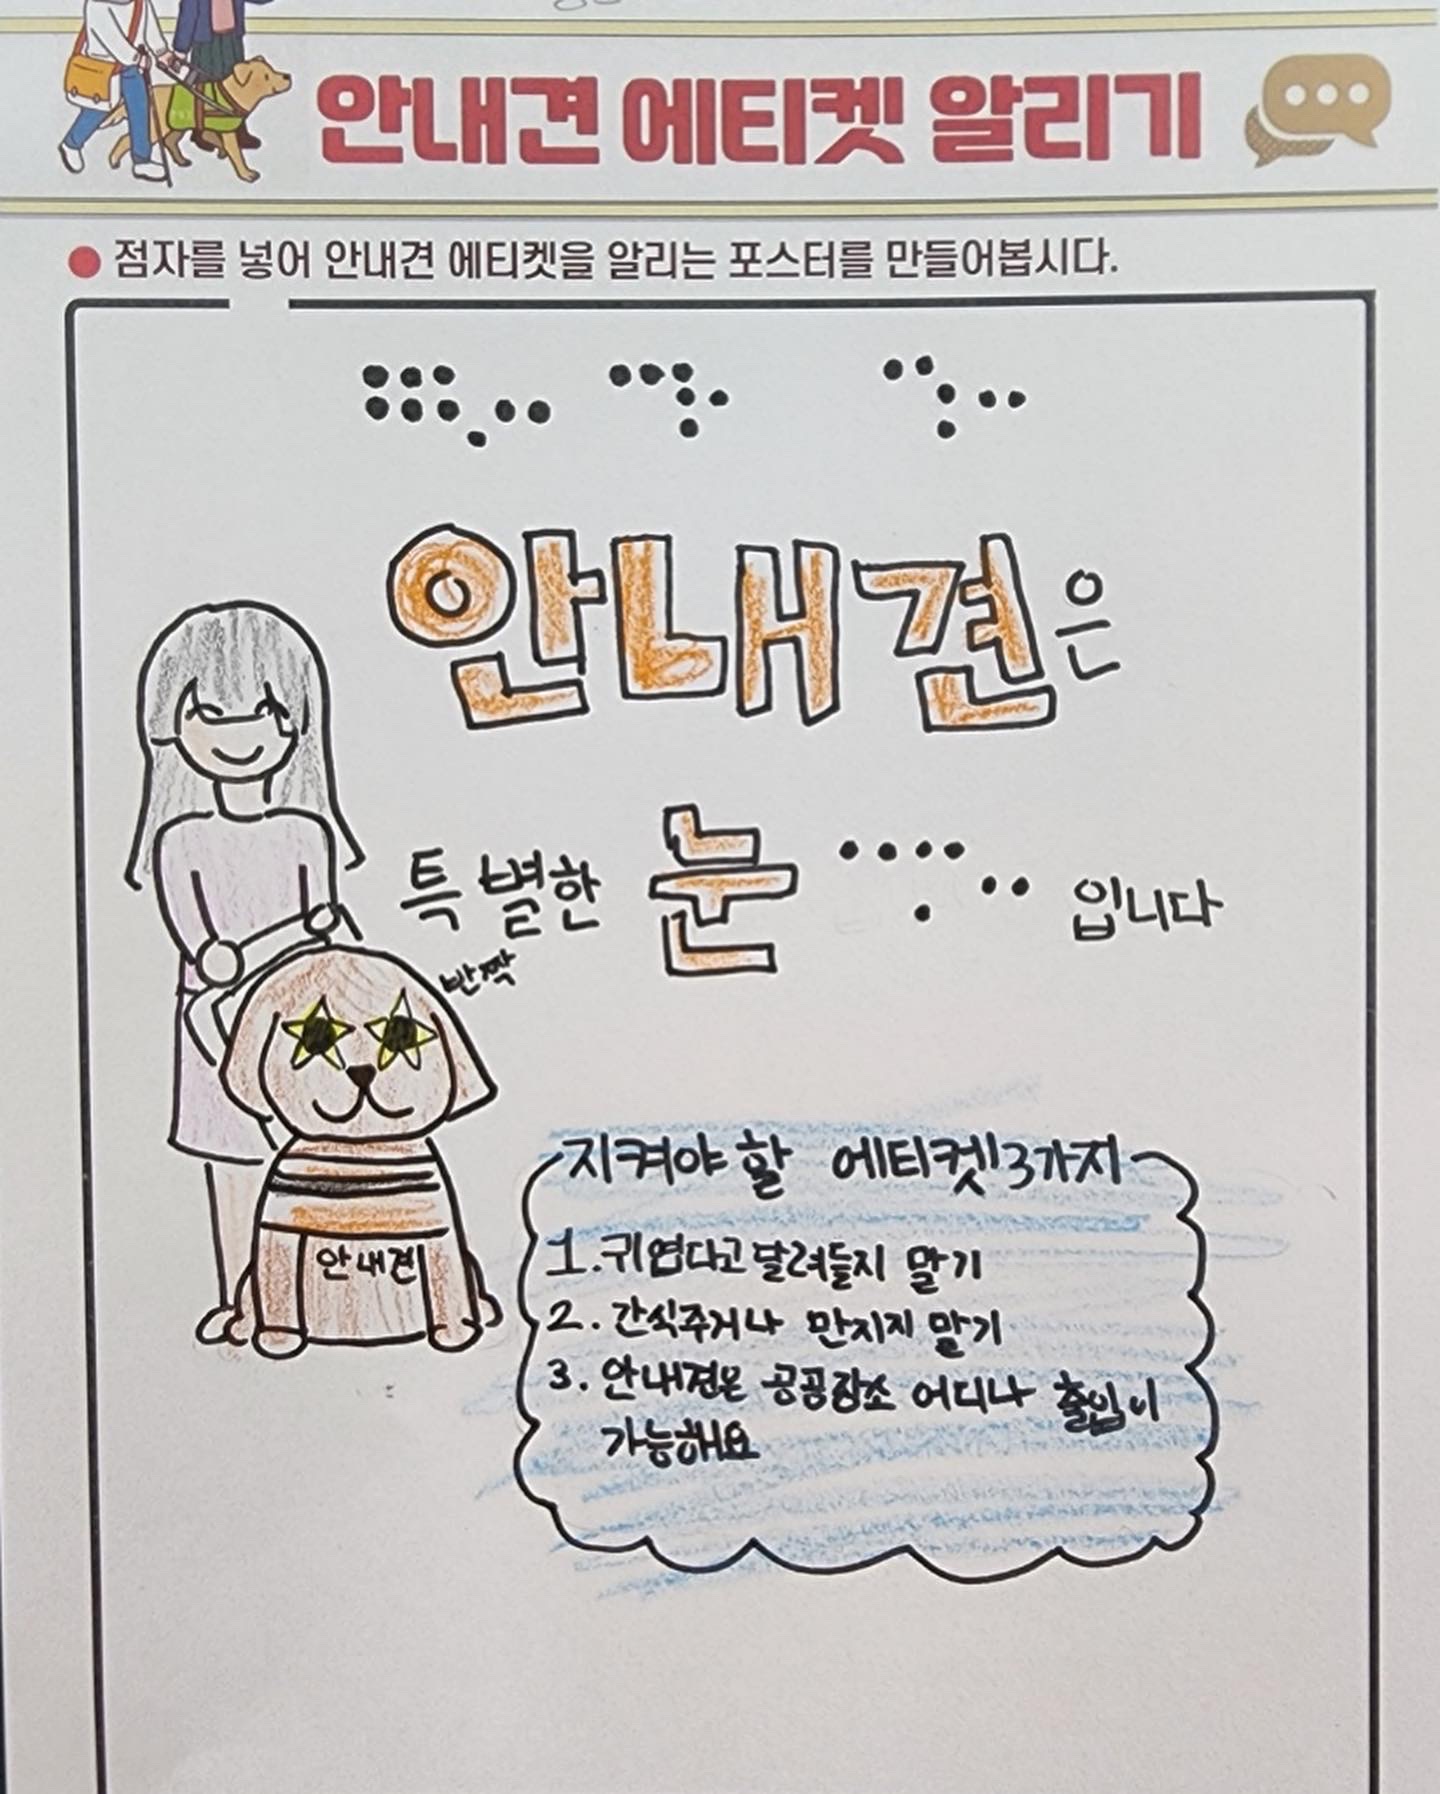 안내견 에티켓 알리기
점자를 넣어 안내견 에티켓을 알리는 포스터를 만들어봅시다.
안내견은
특별한 눈 입니다
반짝
안내견
지켜야 할 에티켓 3가지
1. 귀엽다고 달려들지 말기
2. 간식주거나 만지지 말기
3. 안내견은 공공장소 어디나 출입이
가능해요